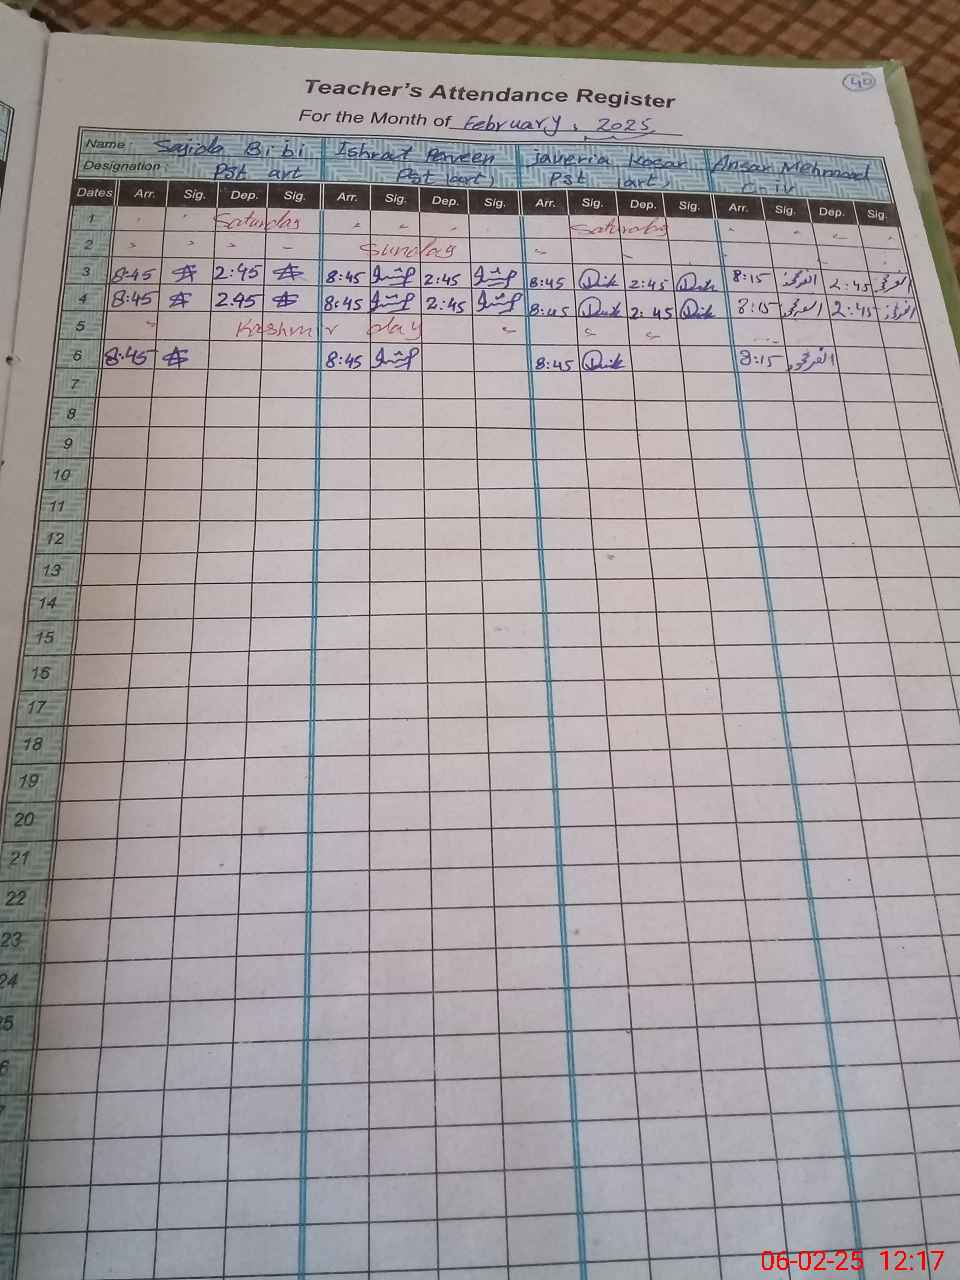 40
Teacher's Attendance Register
For the Month of February, 2025
Name: Sajida Bibi Ishrat Perveen javeria Kosar Ansar Mehmood
Designation: Pst art Pst (art) Pst (art)
Dates Arr. Sig. Dep. Sig. Arr. Sig. Dep. Sig. Arr. Sig. Dep. Sig. Arr. Sig. Dep. Sig.
1 Saturday Saturday
2 Sunday
3 8:45 2:45 8:45 2:45 8:45 2:45 8:15 2:45
4 8:45 2:45 8:45 2:45 8:45 2:45 8:15 2:45
5 Kashmir day
6 8:45 8:45 8:45 8:15
7
8
9
10
11
12
13
14
15
16
17
18
19
20
21
22
23
24
5
6
06-02-25 12:17